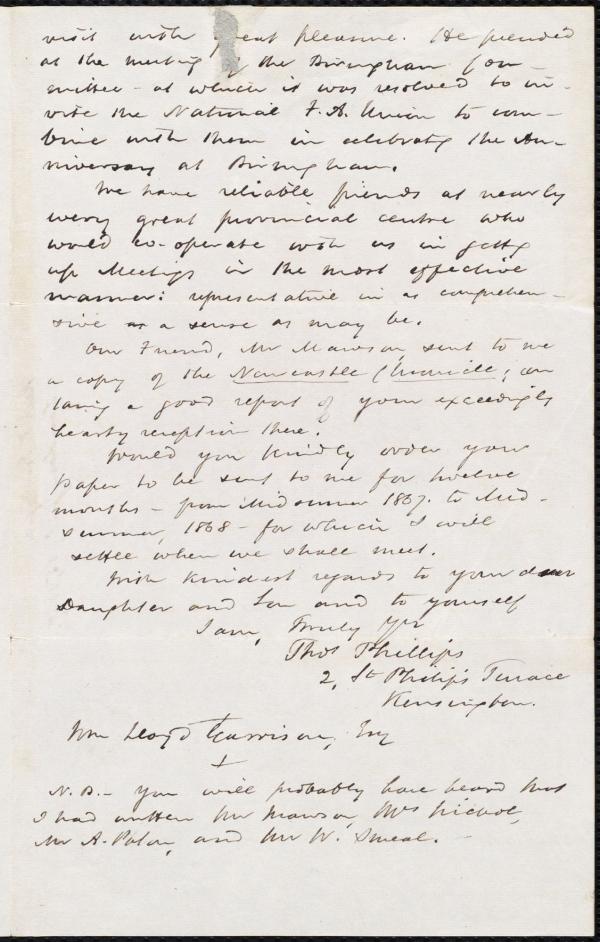 visit with great pleasure. He presided
at the meeting of the Birmingham Com-
mittee - at which it was resolved to in-
vite the National F. A. Union to com-
bine with them in celebrating the An-
niversary at Birmingham.
We have reliable friends at nearly
every great provincial centre who
would co-operate with us in getting
up Meetings in the most effective
manner: representative in as comprehen-
sive a sense as may be.
Our Friend, Mr Mawson, sent to me
a copy of the Newcastle Chronicle, con
taing a good report of your exceedingly
hearty reception there.
Would you kindly order your
paper to be sent to me for twelve
months - from Midsummer 1867. to Mid-
summer, 1868 - for which I will
settle when we shall meet.
With kindest regards to your dear
Daughter and Son and to yourself
I am, Truly Yrs
Thos Phillips
2, St Philip's Terrace
Kensington.
Wm Lloyd Garrison, Esq
N. B. - You will probably have heard that
I had written Mr Mawson, Mrs Nichol,
Mr A. Paton, and Mr W. Smeal.